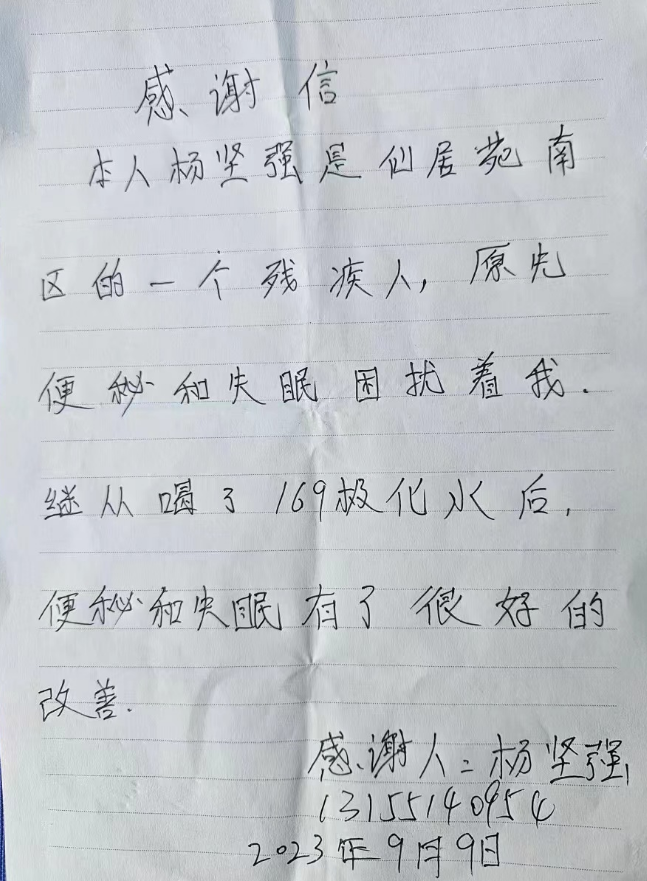 感谢信
本人杨坚强是仙居苑南
区的一个残疾人，原先
便秘和失眠困扰着我.
继从喝了169极化水后,
便秘和失眠有了很好的
改善.
感谢人：杨坚强,
13155140954
2023年9月9日